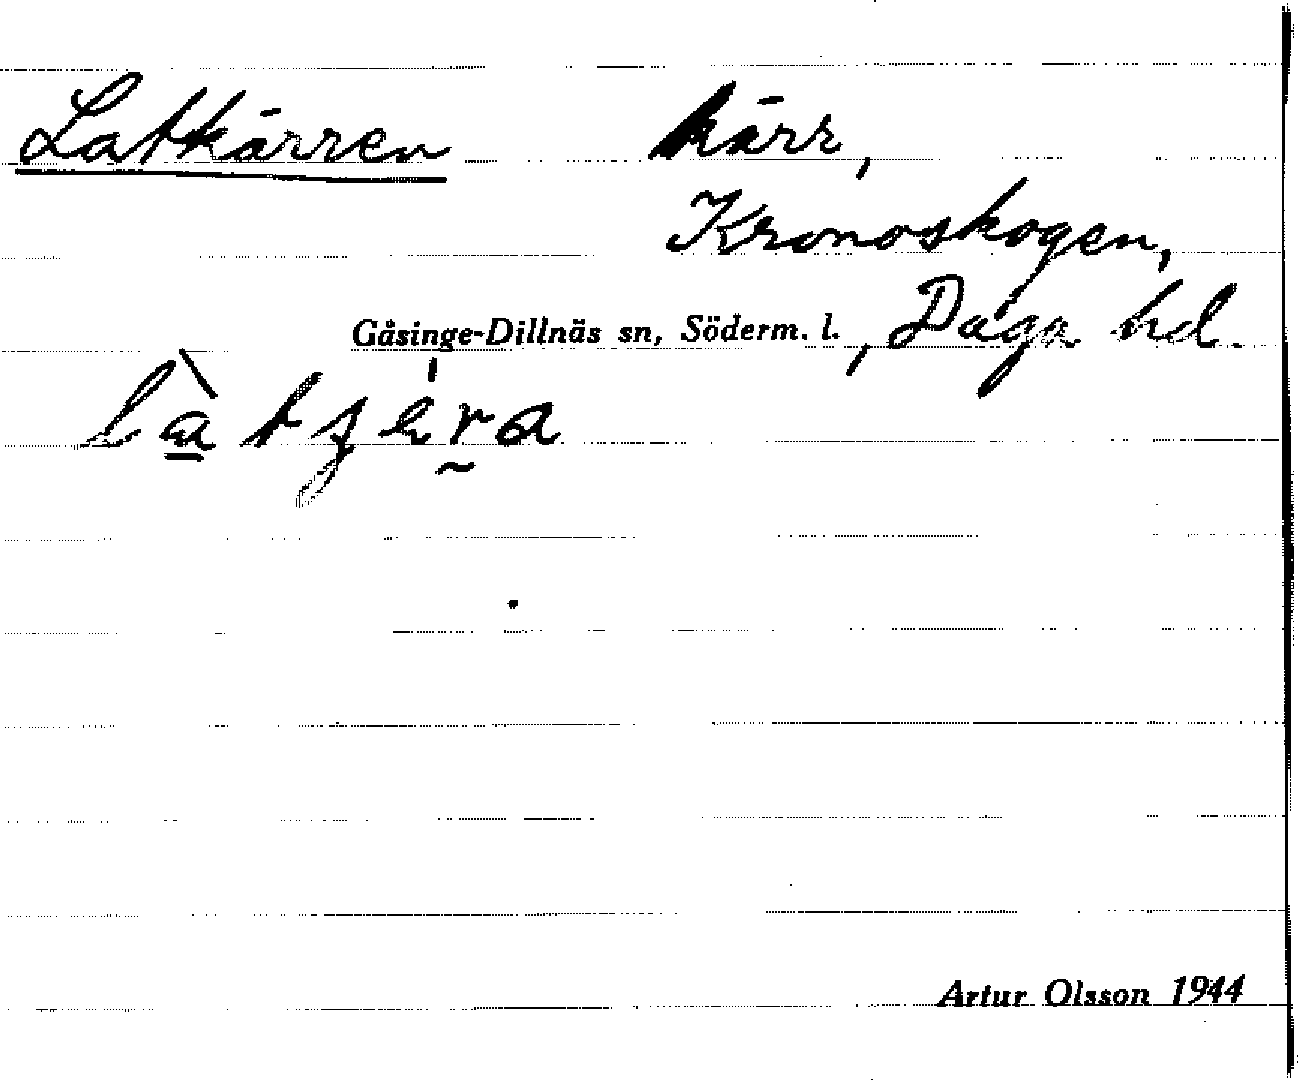 Latkärren kärr,
Kronoskogen,
Gåsinge-Dillnäs sn, Söderm. l., Daga hd.
Artur Olsson 1944